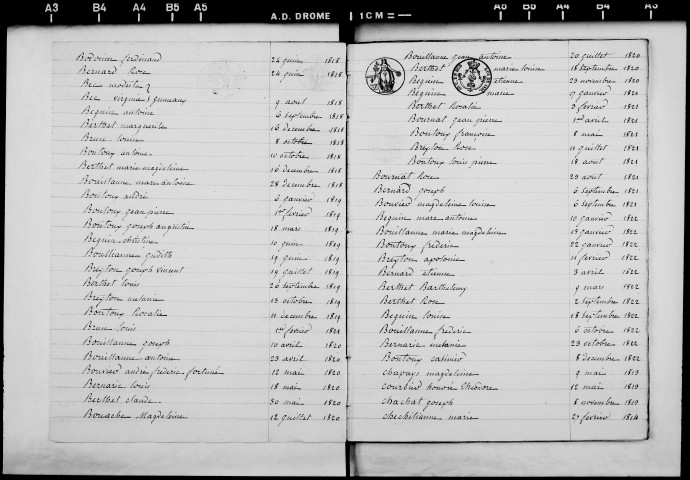 A3 B4 A4 B5 A5 A.D. DROME 1 CM A5 B5 A4 B4 A3
Bodouin ferdinand 24 juin 1818
Bernard Rose 24 juin 1818
Bec modeste
Bec virginie jumeaux 9 aout 1818
Beguin antoine 6 septembre 1818
Berthet marguerite 16 decembre 1818
Brun louise 8 octobre 1818
Boutoux antoine 10 octobre 1818
Berthet marie magdeleine 16 decembre 1818
Bouillanne marc antoine 28 decembre 1818
Boutoux andré 6 janvier 1819
Boutoux jean pierre 1er fevrier 1819
Boutoux joseph augustin 18 mars 1819
Beguin christine 10 juin 1819
Bouillanne judith 19 juin 1819
Breyton joseph vincent 19 juillet 1819
Berthet louis 26 septembre 1819
Breyton melanie 13 octobre 1819
Boutoux Rosalie 11 decembre 1819
Brun louis 1er fevrier
Bouillanne joseph 10 avril 1820
Bouillanne antoine 23 avril 1820
Bouvier andré fréderic fortuné 12 mai 1820
Bernarie louis 18 mai 1820
Berthet claude 30 mai 1820
Bouache Magdeleine 12 juillet 1820
Bouillanne jean antoine 20 juillet 1820
Berthet marie louise 18 septembre 1820
Beguin etienne 23 novembre 1820
Beguin marie 17 janvier 1821
Berthet Rosalie 2 fevrier 1821
Bournat jean pierre 1er avril 1821
Boutoux francois 8 mai 1821
Breyton Rose 11 juillet 1821
Boutoux louis pierre 18 aout 1821
Bournat Rose 29 aout 1821
Bernard joseph 6 septembre 1821
Bouvier magdeleine louise 6 septembre 1821
Beguin marc antoine 10 janvier 1822
Bouillanne marie magdeleine 13 janvier 1822
Boutoux frederic 22 janvier 1822
Breyton apolonie 11 fevrier 1822
Bernard etienne 3 avril 1822
Berthet Barthelemy 9 mars 1822
Berthet Rose 2 septembre 1822
Beguin louise 18 septembre 1822
Bouillanne frederic 6 octobre 1822
Bernarie melanie 23 octobre 1822
Boutoux casimir 8 decembre 1822
chavays magdeleine 9 mai 1813
courbier honoré theodore 12 mai 1813
chachat joseph 8 novembre 1813
chechetianne marie fevrier 1814